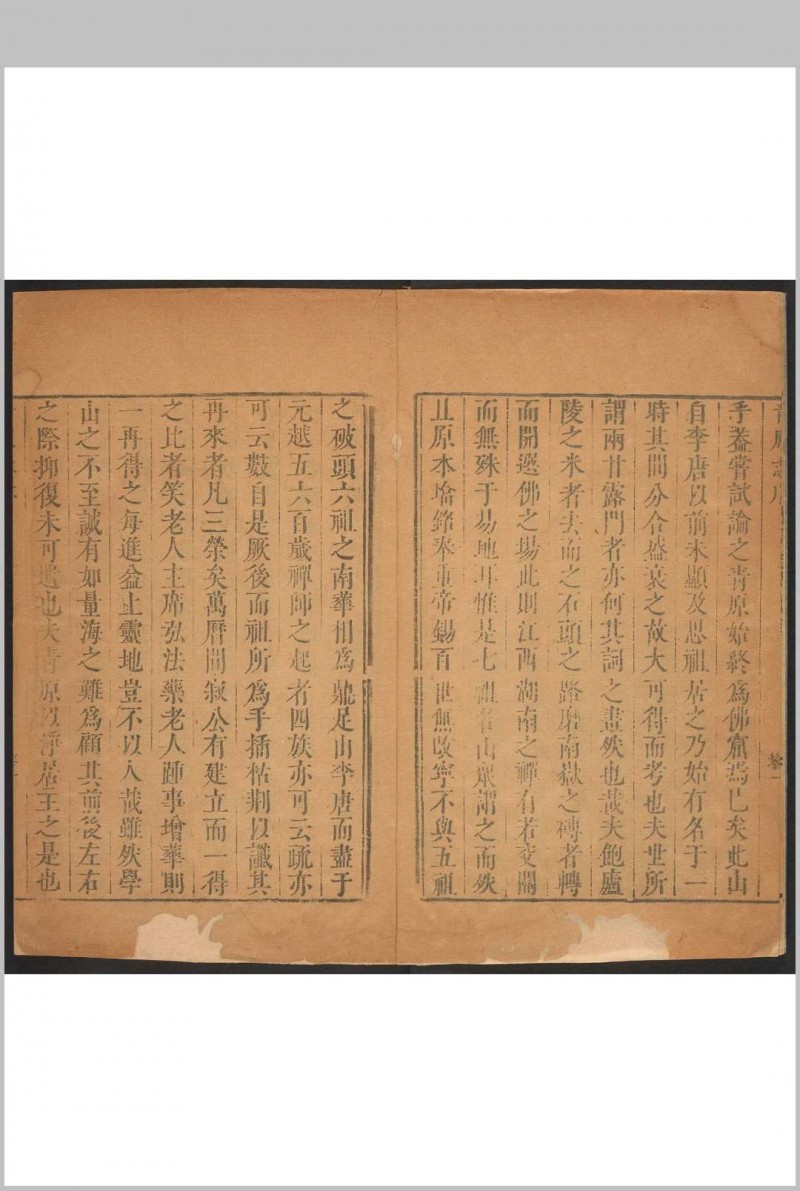 手葢嘗試論之青原始終為佛窟焉巳矣此山
自李唐以前未顯及思祖居之乃始有名于一
時其間分合盛衰之故大可得而考也夫世所
謂兩甘露門者亦何其詞之盡然也哉夫飽廬
陵之米者去而之石頭之路磨南嶽之磚者轉
而開選佛之場此則江西湖南之禪有若交關
而無殊于易地耳惟是七祖名山衆謂之而然
且原本增銘奉重帝錫百世無改寧不與五祖
之破頭六祖之南華相為鼎足山李唐而盡于
元越五六百歲禪師之起者四族亦可云疏亦
可云數自是厥後而祖所為手插枯荆以讖其
再來者凡三榮矣萬曆間寂公有建立而一得
之比者笑老人主席弘法藥老人踵事增華則
一再得之每進益上靈地豈不以人哉雖然學
山之不至誠有如量海之難為顧其前後左右
之際抑復未可也夫青原以淨居主之是也